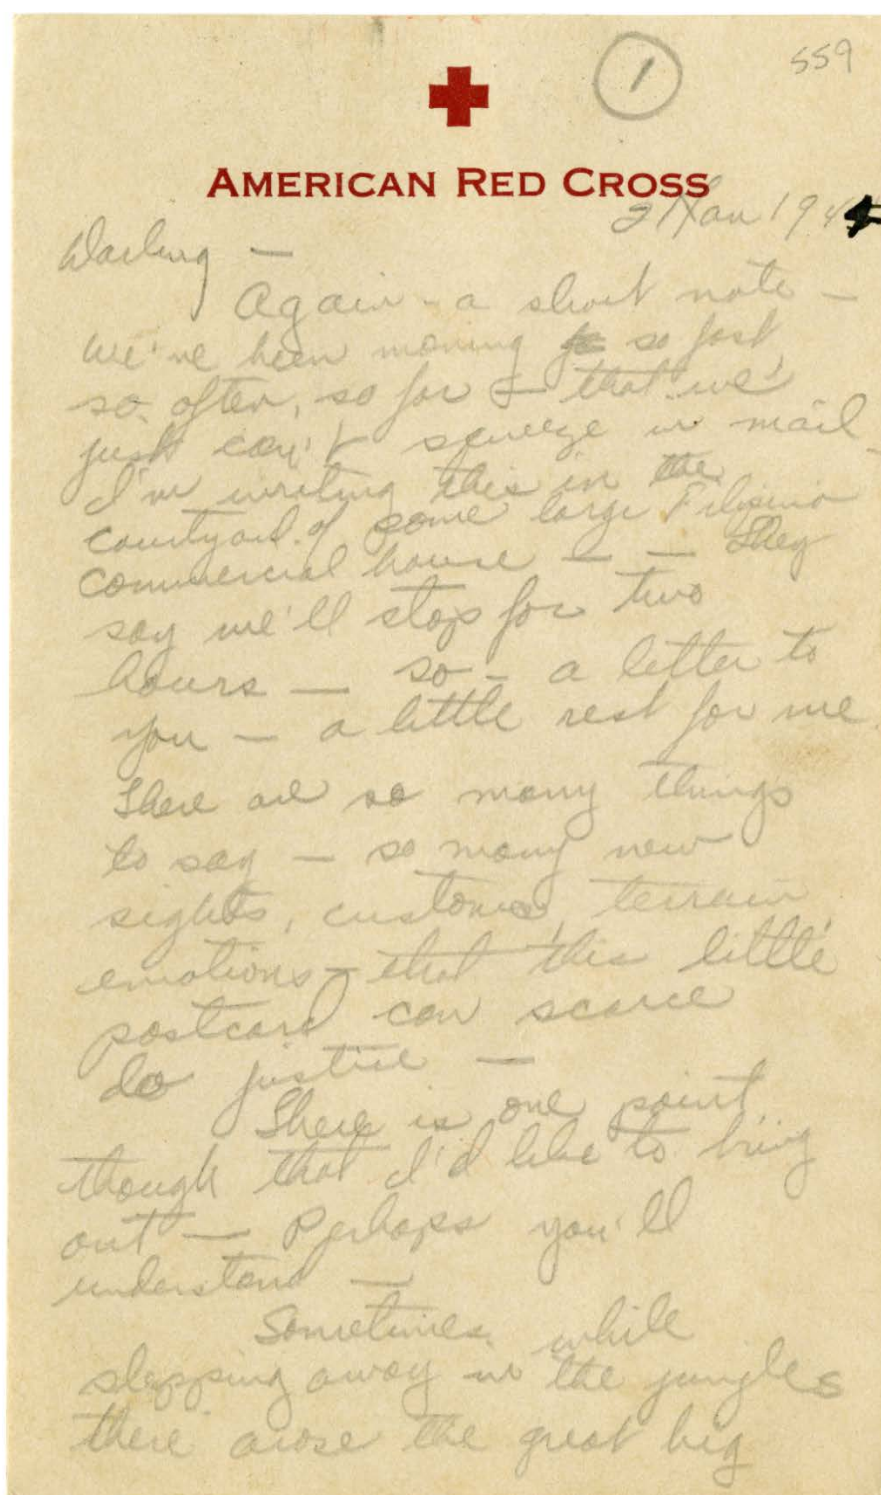 559
1
AMERICAN RED CROSS
21 Jan 194
Darling —
Again - a short note —
We've been moving so fast
so often, so far — that we
just can't squeeze in mail —
I'm writing this in the
courtyard of some large Filipino
commercial house — — They
say we'll stop for two
hours — so — a letter to
you — a little rest for me.
There are so many things
to say — so many new
sights, customs, terrain,
emotions — that this little
postcard can scarce
do justice —
There is one point
though that I'd like to bring
out — Perhaps you'll
understand —
Sometimes, while
slopping away in the jungles
there arose the great big